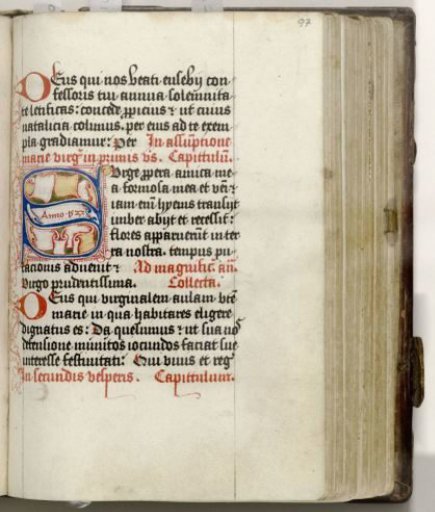 97
DEus qui nos beati eusebij con
fessoris tui annua solemnita
te letificas: concede ppicius ut cuius
natalicia colimus. per eius ad te exem
pla gradiamur: Per In assūptione
marie virg in primis vs. Capitulū.
SUrge ppera amica me
a formosa mea et veni
iam enī hyems transijt
imber abijt et recessit:
flores apparuerūt in ter
Anno 152
ra nostra. tempus pu
tacionis aduenit Ad magnific. an.
Virgo prudentissima. Collecta.
DEus qui virginalem aulam bte
marie in qua habitares eligere
dignatus es: Da quesumus ut sua nos
defensione munitos iocundos faciat sue
interesse festiuitati: Qui viuis et reg
In secundis vesperis. Capittulum.